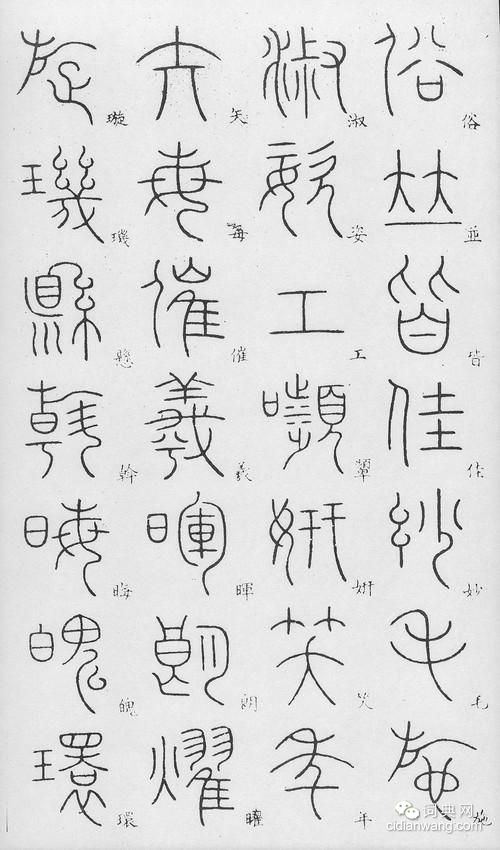 俗並皆佳妙毛施
淑姿工顰妍笑年
矢每催羲暉朗曜
璇璣懸幹晦魄環
词典网
cidianwang.com